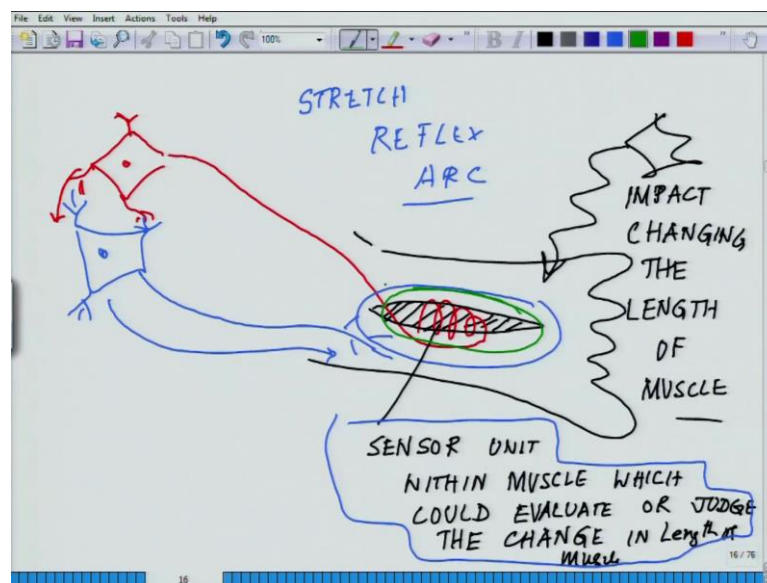 File Edit View Insert Actions Tools Help
100%
B I
STRETCH
REFLEX
ARC
IMPACT
CHANGING
THE
LENGTH
OF
MUSCLE
SENSOR UNIT
WITHIN MUSCLE WHICH
COULD EVALUATE OR JUDGE
THE CHANGE IN Length of
Muscle
16 / 76
16